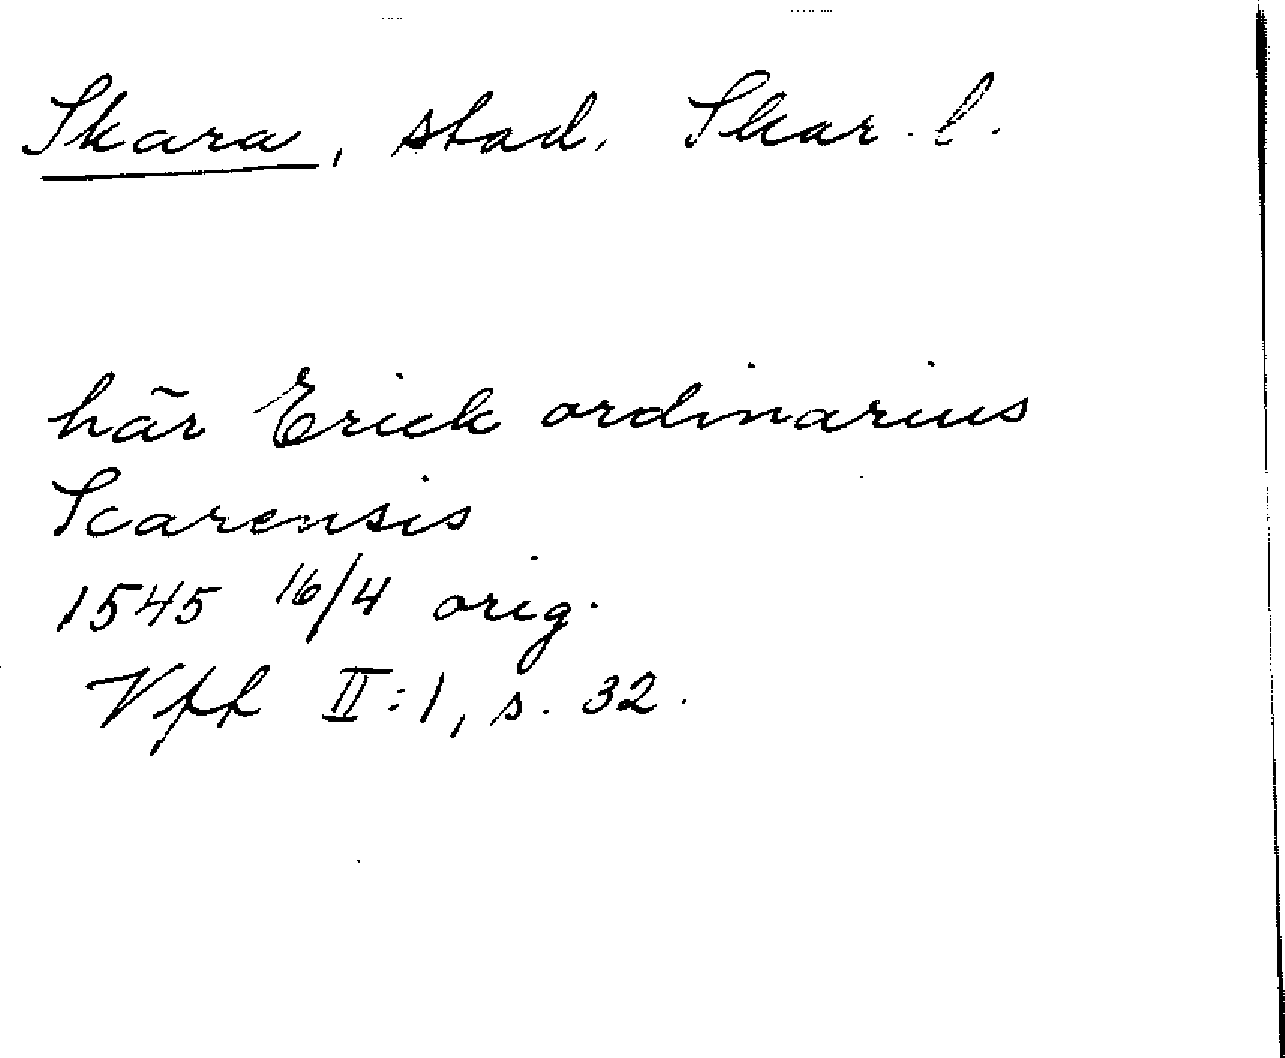 Skara, stad. Skar. l.
här Erick ordinarius
Scarensis
1545 16/4 orig.
Vff II:1, s. 32.